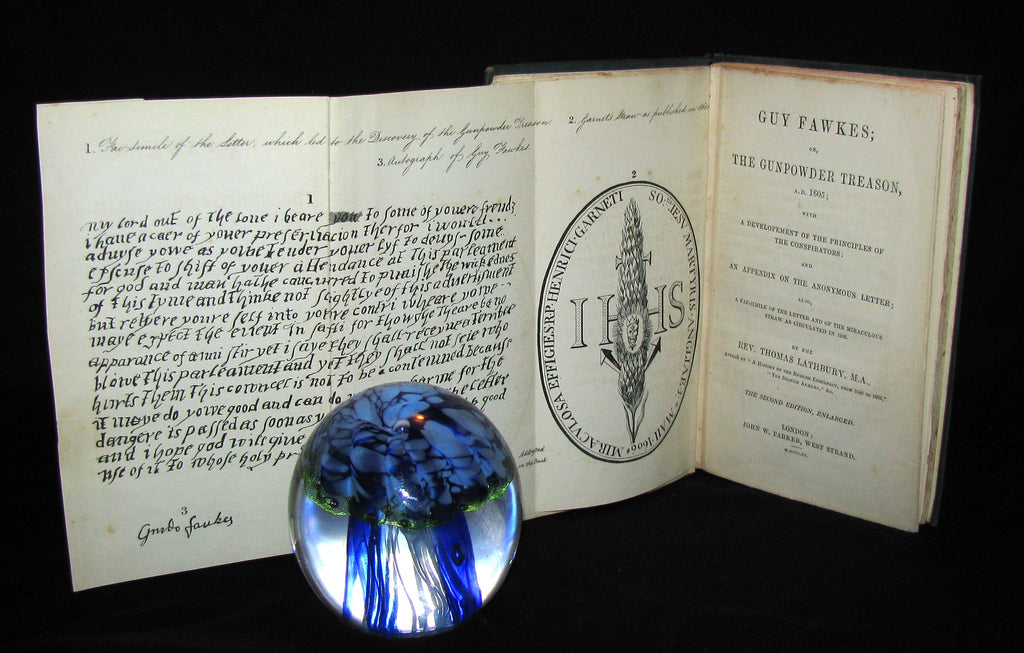 1. Fac-simile of the Letter, which led to the Discovery of the Gunpowder Treason. 2. Garnet's Straw as published in
3. Autograph of Guy Fawkes.
1
my lord out of the loue i beare yow to some of youere frends
i haue a caer of youer preseruacion therfor i would
aduyse yowe as yowe tender youer lyf to deuys some
excuse to shift of youer attendance at this parleament
for god and man hathe concurred to punishe the wickednes
of this tyme and thinke not slightlye of this aduertisment
but retyere youre self into youre contri wheare yowe
maye expect the euent in safti for thowghe theare be no
apparance of anni stir yet i saye they shall receyue a terrible
blowe this parleament and yet they shall not seie who
hurts them this cowncel is not to be contemned because
it maye do yowe good and can do harme for the
dangere is passed as soon as the letter
and i hope god will giue good
use of it to whose holy
3
Guido fawkes
2
MIRACVLOSA EFFIGIES RP. HENRICI GARNETI SO: IESV MARTYRIS ANGLICANI 1606
IHS
GUY FAWKES;
OR,
THE GUNPOWDER TREASON,
A.D. 1605;
WITH
A DEVELOPEMENT OF THE PRINCIPLES OF
THE CONSPIRATORS:
AND
AN APPENDIX ON THE ANONYMOUS LETTER;
ALSO,
A FAC-SIMILE OF THE LETTER AND OF THE MIRACULOUS
STRAW AS CIRCULATED IN 1606.
BY THE
REV. THOMAS LATHBURY, M.A.,
AUTHOR OF "A HISTORY OF THE ENGLISH EPISCOPACY, FROM 1640 TO 1662,"
&c.
THE SECOND EDITION, ENLARGED.
LONDON:
JOHN W. PARKER, WEST STRAND.
M.DCCC.XL.